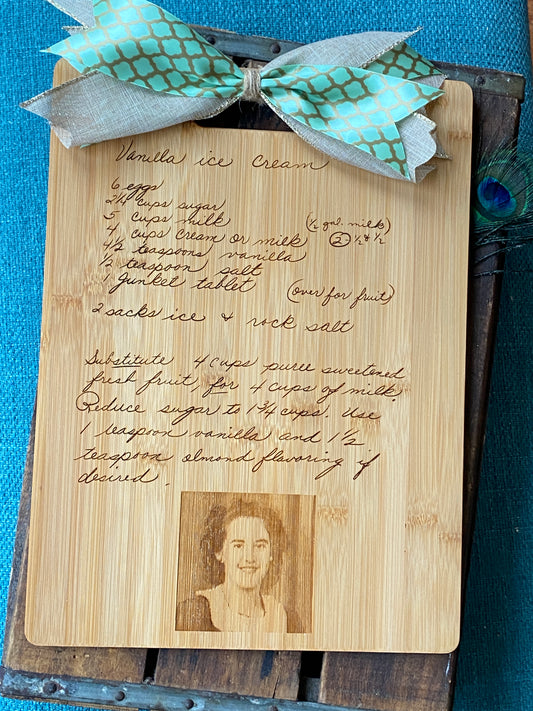 Vanilla ice cream
6 eggs
2 1/4 cups sugar
5 cups milk (1/2 gal. milk)
4 cups cream or milk (2 - 1/2 + 1/2)
4 1/2 teaspoons vanilla
1/2 teaspoon salt
1 Junket tablet (over for fruit)
2 sacks ice + rock salt
Substitute 4 cups puree sweetened
fresh fruit, for 4 cups of milk.
Reduce sugar to 1 3/4 cups. Use
1 teaspoon vanilla and 1 1/2
teaspoon almond flavoring if
desired.